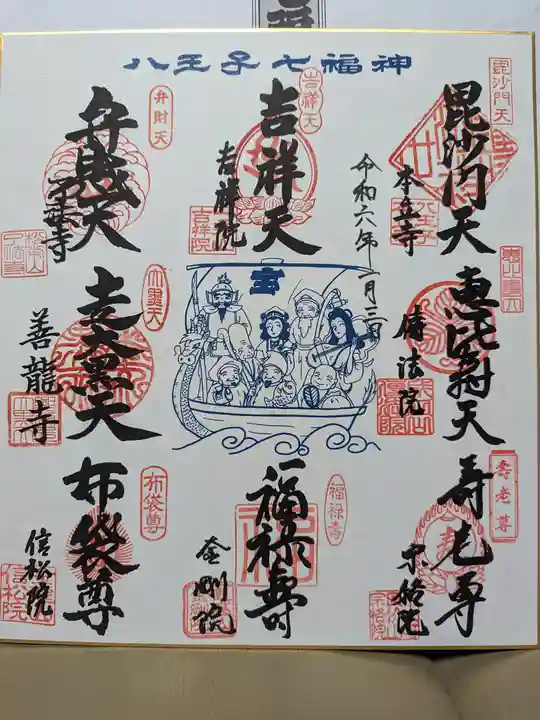 八王子七福神
毘沙門天
毘沙門天
本立寺
吉祥天
吉祥天
吉祥院
吉祥院
弁財天
弁財天
令和六年一月三日
宝
恵比寿天
傳法院
走大黒天
大黒天
善龍寺
寿老尊
寿老尊
宗格院
福禄寿
福禄寿
金剛院
布袋尊
布袋尊
信松院
信松院